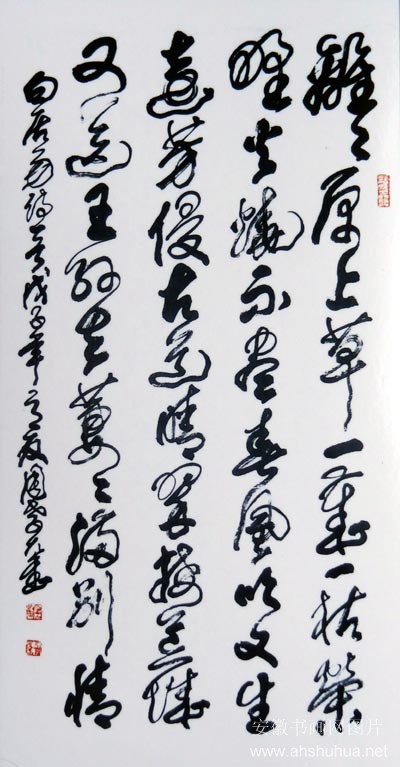 離々原上草一歲一枯榮
野火燒不盡春風吹又生
遠芳侵古道晴翠接荒城
又送王孫去萋々滿別情
白居易詩一首戊子年之夏周
安徽书画网图片
www.ahshuhua.net